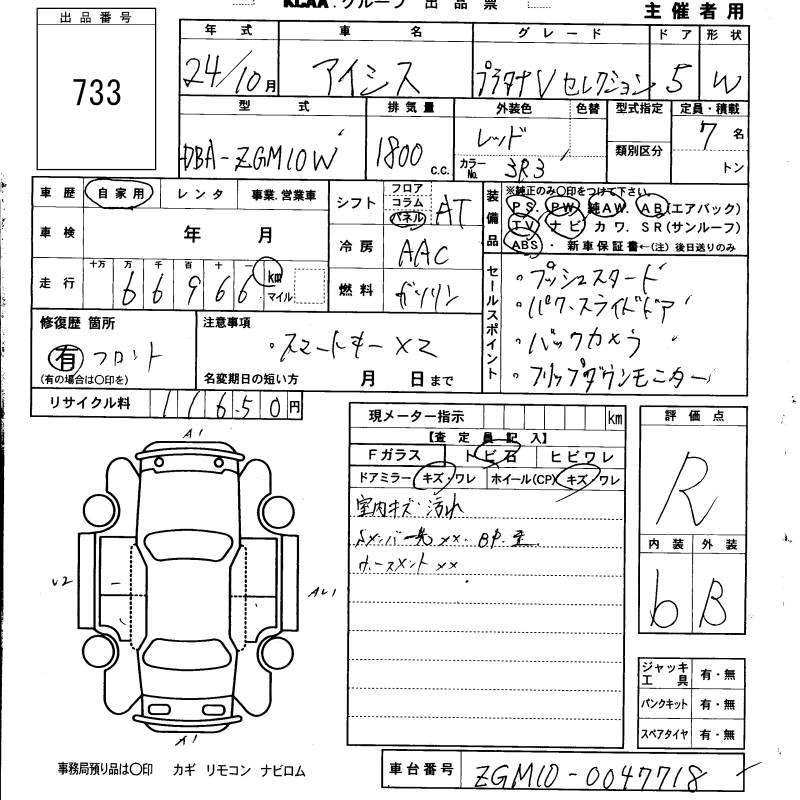 KCAA.グループ 出品票
主催者用
出品番号
733
年式 車名 グレード ドア 形状
24/10月 アイシス プラタナVセレクション 5 W
型式 排気量 外装色 色替 型式指定 定員・積載
DBA-ZGM10W 1800c.c. レッド 類別区分 7名
カラーNo. 3R3 トン
車歴 自家用 レンタ 事業.営業車
車検 年 月
走行 十万 万 千 百 十 一
66966 km マイル
シフト フロア コラム パネル AT
冷房 AAC
燃料 ガソリン
装備品 ※純正のみ〇印をつけて下さい。
PS. PW. 純AW. AB(エアバック)
TV ナビ カワ. SR(サンルーフ)
ABS ・ 新車保証書←(注)後日送りのみ
セールスポイント
・プッシュスタード
・パワースライドドア
・バックカメラ
・フリップダウンモニター
修復歴 箇所
有 フロント
(有の場合は〇印を)
注意事項
・スマートキー×2
名変期日の短い方 月 日まで
リサイクル料 11650円
現メーター指示 km
【査定員記入】
Fガラス トビ石 ヒビワレ
ドアミラー キズ・ワレ ホイール(CP) キズ・ワレ
室内キズ・汚れ
評価点
R
内装 外装
b B
A1
V2
A1
ジャッキ工具 有・無
パンクキット 有・無
スペアタイヤ 有・無
事務局預り品は〇印 カギ リモコン ナビロム
車台番号 ZGM10-0047718